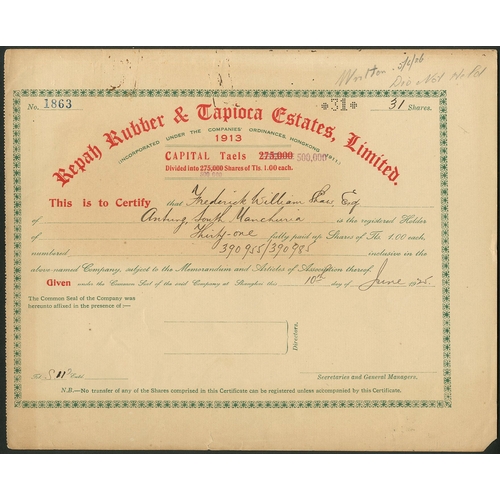 Written 5/6/26
Did Not
No. 1863 *31* 31 Shares.
Repah Rubber & Tapioca Estates, Limited.
INCORPORATED UNDER THE COMPANIES' ORDINANCES, HONGKONG
1913
CAPITAL Taels 275,000 500,000
Divided into 275,000 Shares of Tls. 1.00 each.
500,000
This is to Certify that Frederick William Shaw, Esq
of Antung, South Manchuria is the registered Holder
of Thirty-one fully paid up Shares of Tls. 1.00 each.
numbered 390955/390985 inclusive in the
above-named Company, subject to the Memorandum and Articles of Association thereof.
Given under the Common Seal of the said Company at Shanghai this 10th day of June 1925.
The Common Seal of the Company was
hereunto affixed in the presence of:—
Directors.
Secretaries and General Managers.
N.B.—No transfer of any of the Shares comprised in this Certificate can be registered unless accompanied by this Certificate.